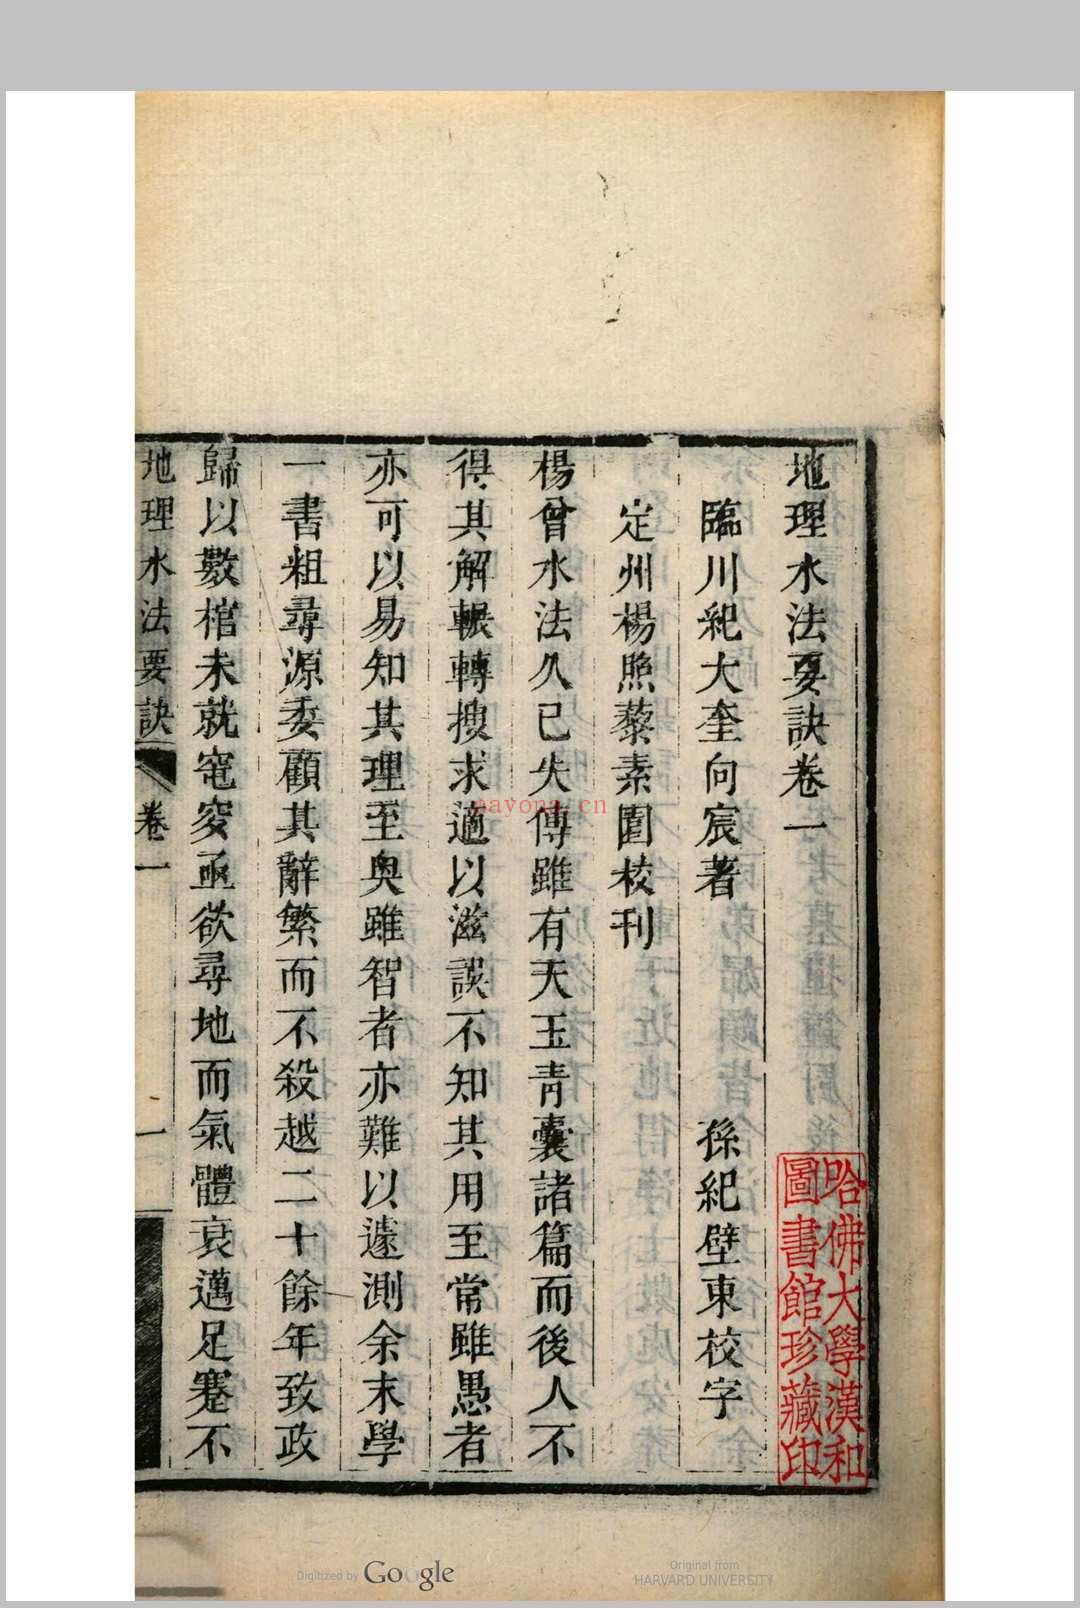 地理水法要訣卷一
臨川紀大奎向宸著　孫紀壁東校字
定州楊照藜素園校刊
楊曾水法久已失傳雖有天玉青囊諸篇而後人不
得其解輾轉搜求適以滋誤不知其用至常雖愚者
亦可以易知其理至奥雖智者亦難以遽測余末學
一書粗尋源委顧其辭繁而不殺越二十餘年致政
歸以數棺未就窀穸亟欲尋地而氣體衰邁足蹇不
地理水法要訣　卷一　一
哈佛大學漢和
圖書館珍藏印
nayona.cn
Digitized by Google
Original from
HARVARD UNIVERSITY